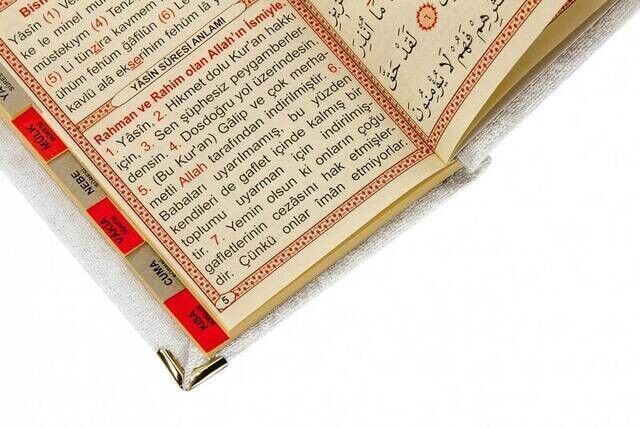 Yâsin (1)
ke le minel
müstekıym (4) Tenz
(5) Li tünzira kavmem
ühüm fehüm ğâfilûn (6) Le
kavlü alâ ekserihim fehüm lâ y
YÂSÎN SÛRESİ ANLAMI
Rahman ve Rahim olan Allah'ın ismiyle
1. Yâsin, 2. Hikmet dolu Kur'an hakkı
için. 3. Sen şüphesiz peygamberler-
densin. 4. Dosdoğru yol üzerindesin.
5. (Bu Kur'an) Gâlip ve çok merha
metli Allah tarafından indirilmiştir. 6.
Babaları uyarılmamış, bu yüzden
kendileri de gaflet içinde kalmış bir
toplumu uyarman için indirilmiş-
tir. 7. Yemin olsun ki onların çoğu
gafletlerinin cezâsını hak etmişler
dir. Çünkü onlar îmân etmiyorlar.
5
لَقَدْ حَقَّ
فَهُمْ لَا يُؤْمِنُونَ
MÜLK
NEBE
VAKIA
CUMA
KISA